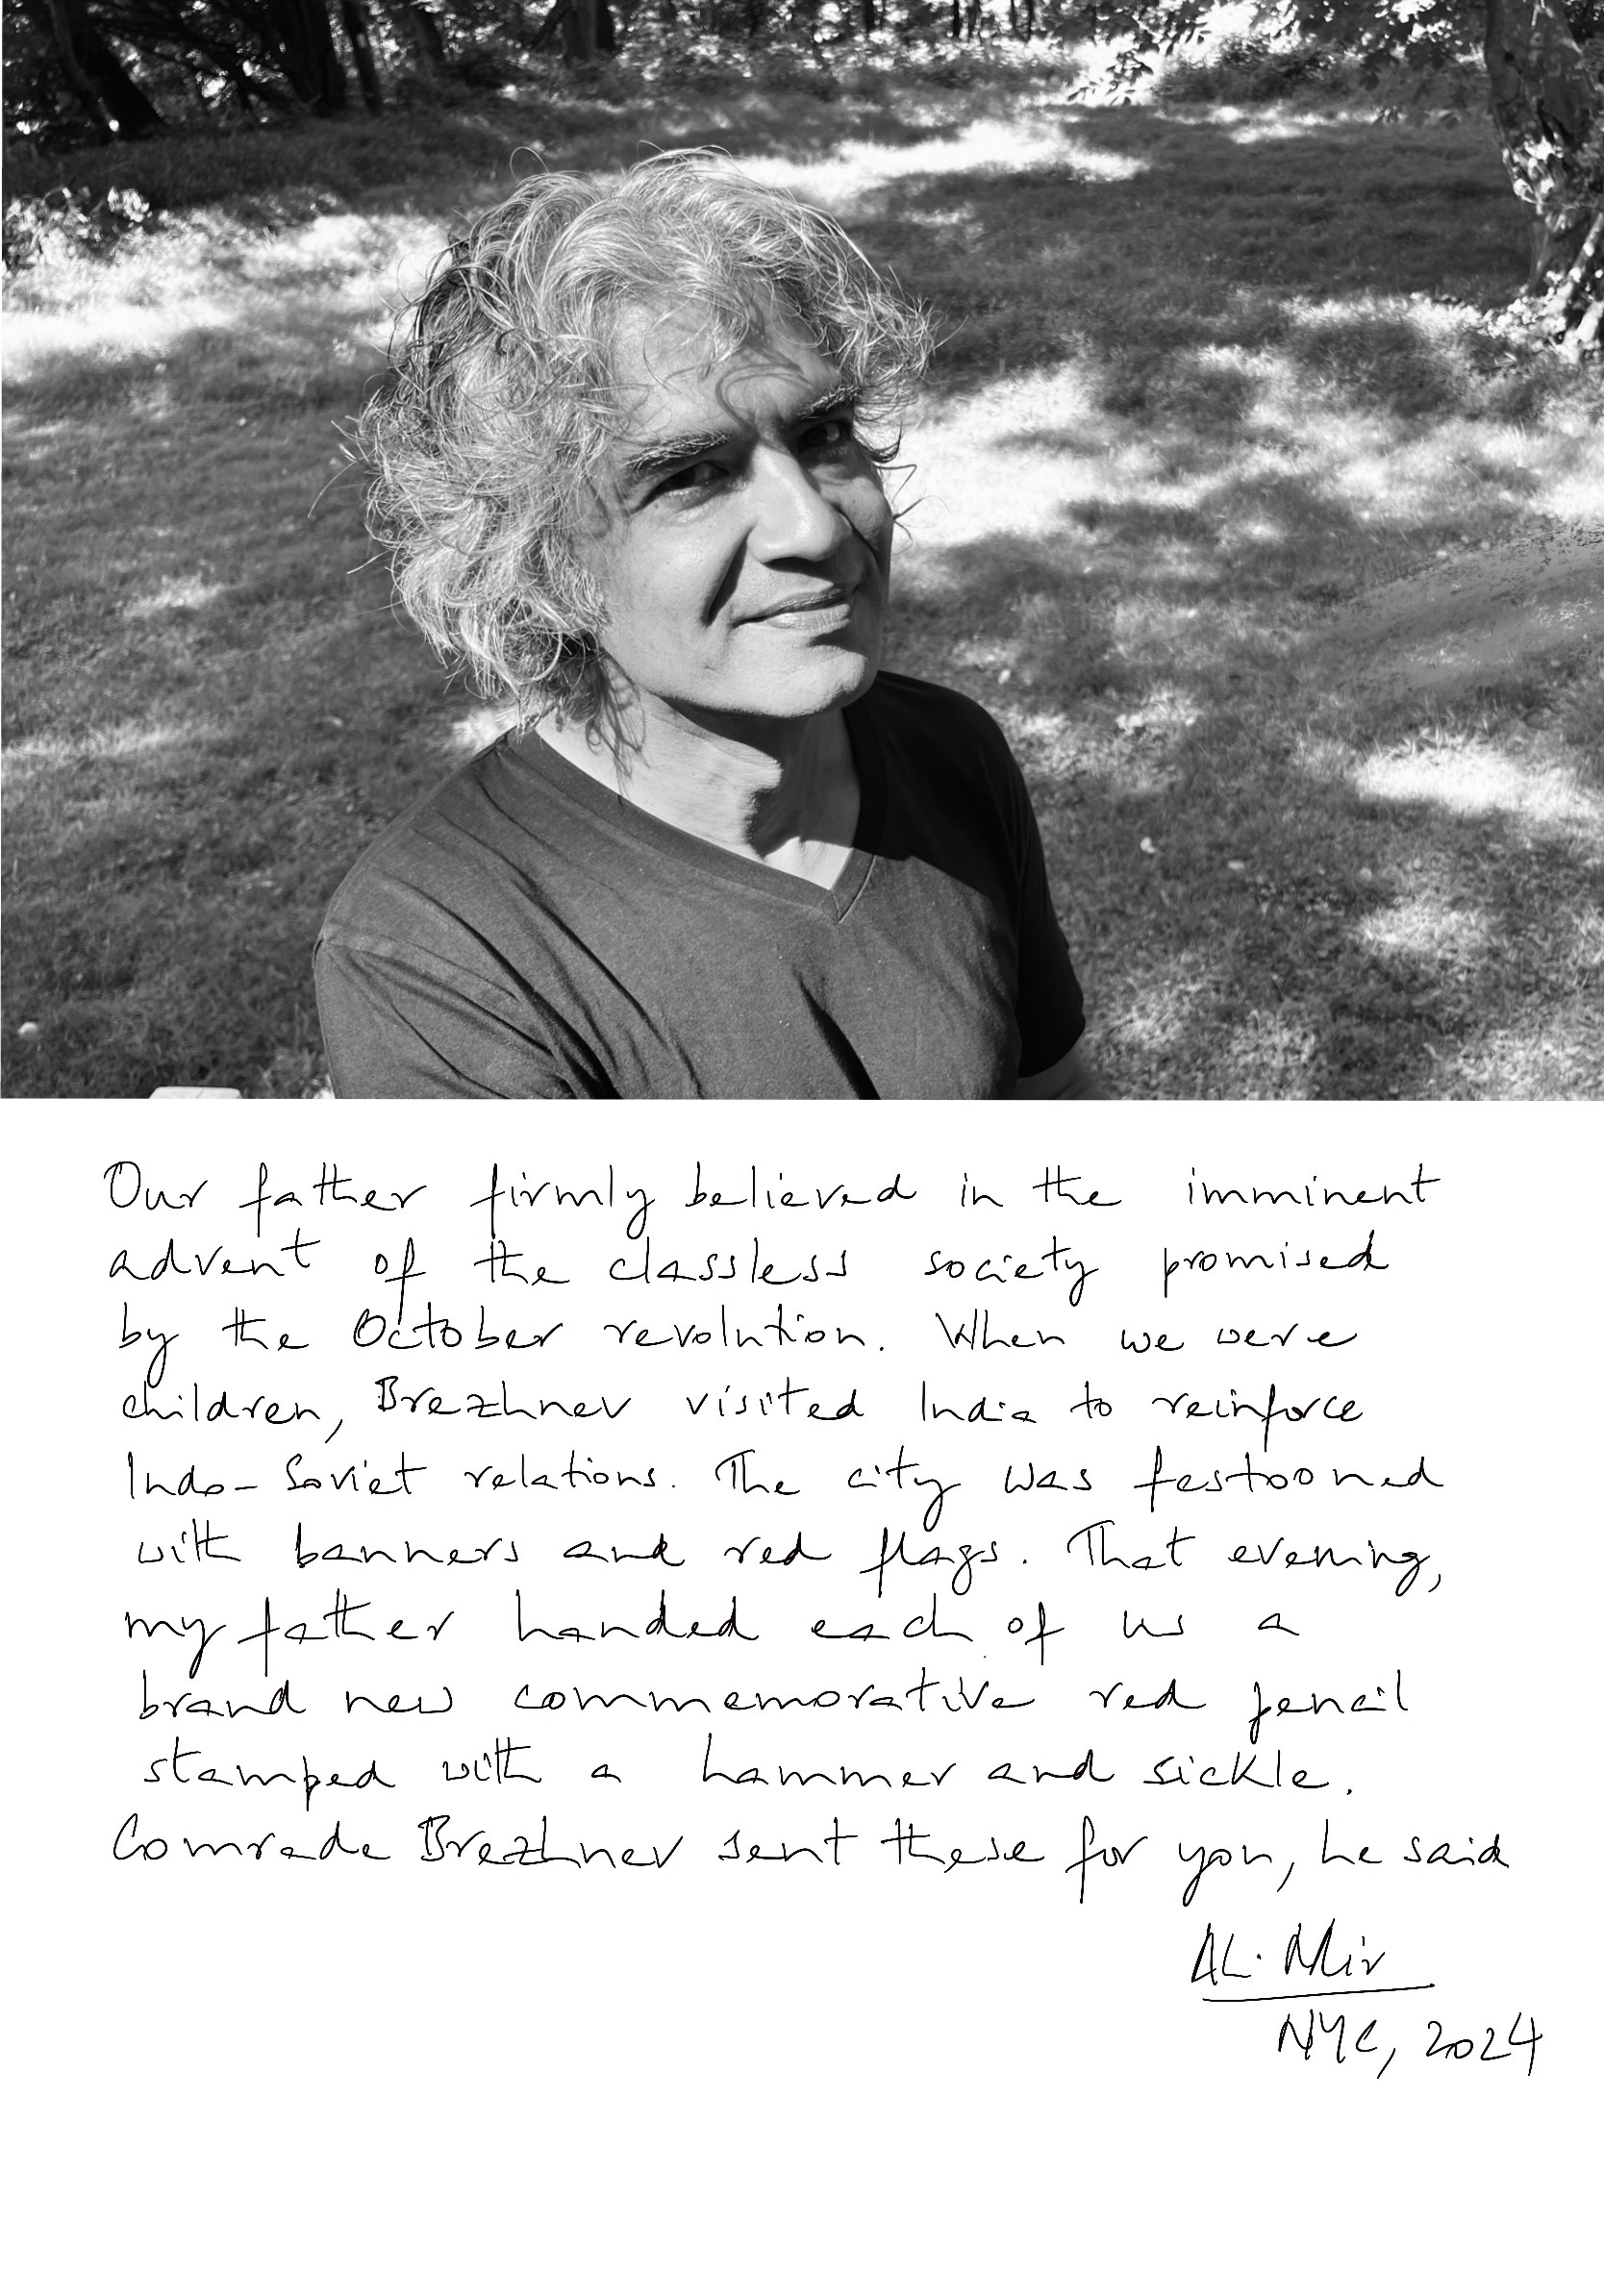 Our father firmly believed in the imminent
advent of the classless society promised
by the October revolution. When we were
children, Brezhnev visited India to reinforce
Indo-Soviet relations. The city was festooned
with banners and red flags. That evening,
my father handed each of us a
brand new commemorative red pencil
stamped with a hammer and sickle.
Comrade Brezhnev sent these for you, he said
AL. Mir
NYC, 2024